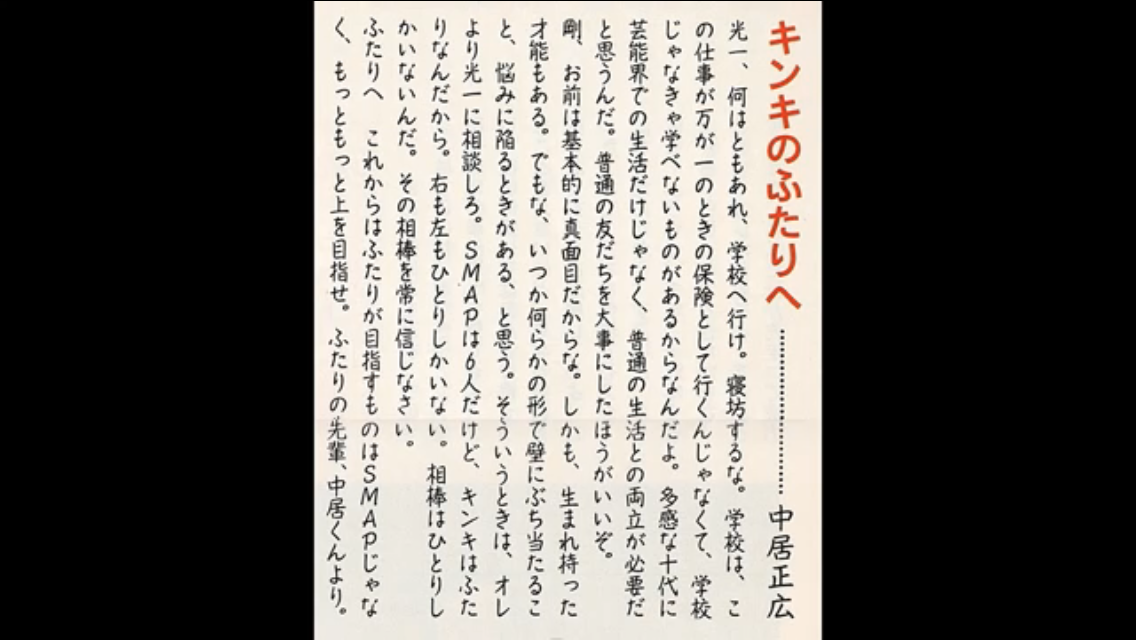 キンキのふたりへ………………中居正広
光一、何はともあれ、学校へ行け。寝坊するな。学校は、こ
の仕事が万が一のときの保険として行くんじゃなくて、学校
じゃなきゃ学べないものがあるからなんだよ。多感な十代に
芸能界での生活だけじゃなく、普通の生活との両立が必要だ
と思うんだ。普通の友だちを大事にしたほうがいいぞ。
剛、お前は基本的に真面目だからな。しかも、生まれ持った
才能もある。でもな、いつか何らかの形で壁にぶち当たるこ
と、悩みに陥るときがある、と思う。そういうときは、オレ
より光一に相談しろ。SMAPは6人だけど、キンキはふた
りなんだから。右も左もひとりしかいない。相棒はひとりし
かいないんだ。その相棒を常に信じなさい。
ふたりへ　これからはふたりが目指すものはSMAPじゃな
く、もっともっと上を目指せ。ふたりの先輩、中居くんより。